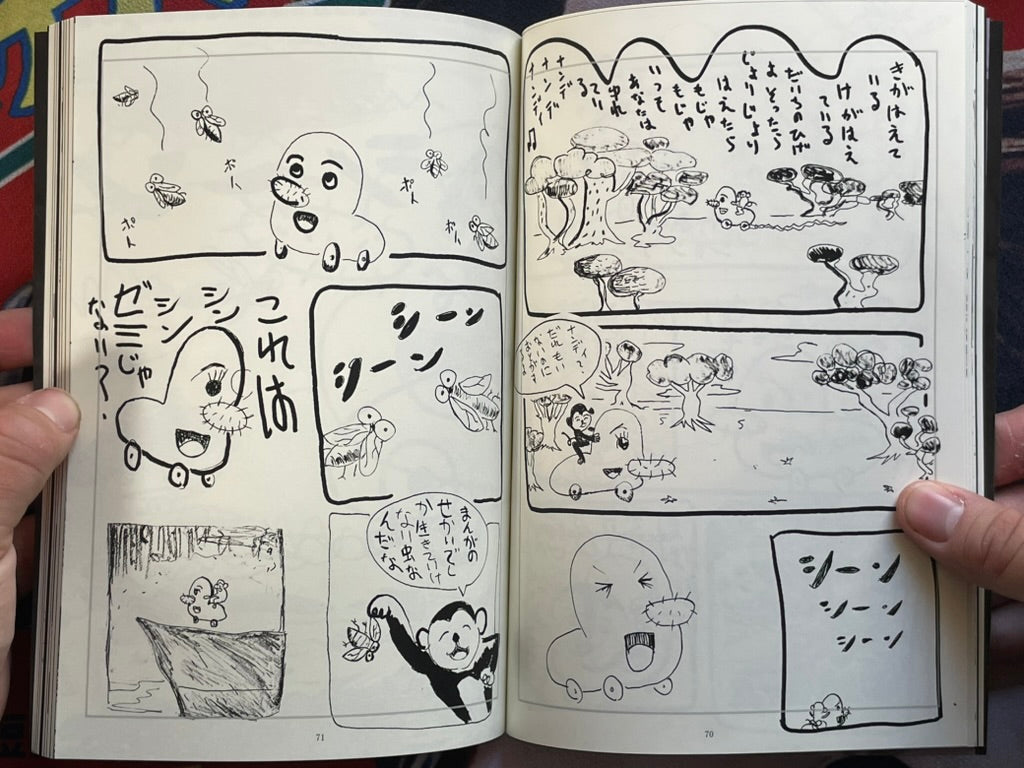 きがはえて
いる
けがはえ
ている
だいちのひげ
よ そったら
じょりじょり
はえたら
もじゃ
もじゃ
いつも
あなたは
ゆれ
てい
る
ナンデ
ナンデ
だれもい
シーン
シーン
シーン
70
ポト
ポト
ポト
ポト
シーン
シーン
これは
シン
シン
ゼミじゃ
ない?
まんがの
せかいでし
か生きていけ
ない虫な
んだな
71